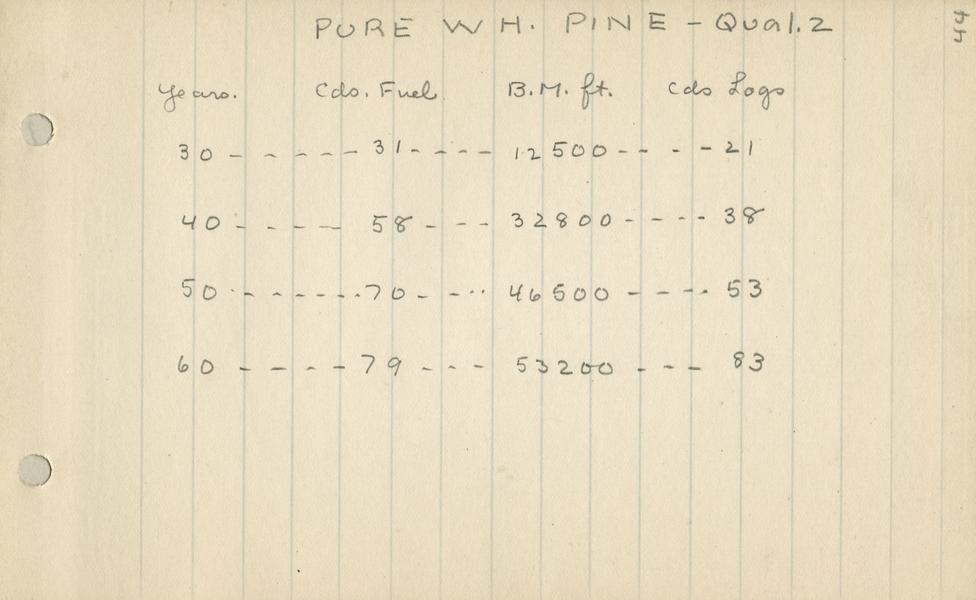 PURE WH. PINE - Qual. 2
44
Years. Cds. Fuel. B.M. ft. Cds Logs
30 - - - - - - 31 - - - - - 12500 - - - - 21
40 - - - - - 58 - - - - 32800 - - - - 38
50 - - - - - - - 70 - - - - - 46500 - - - - 53
60 - - - - - 79 - - - 53200 - - - 83